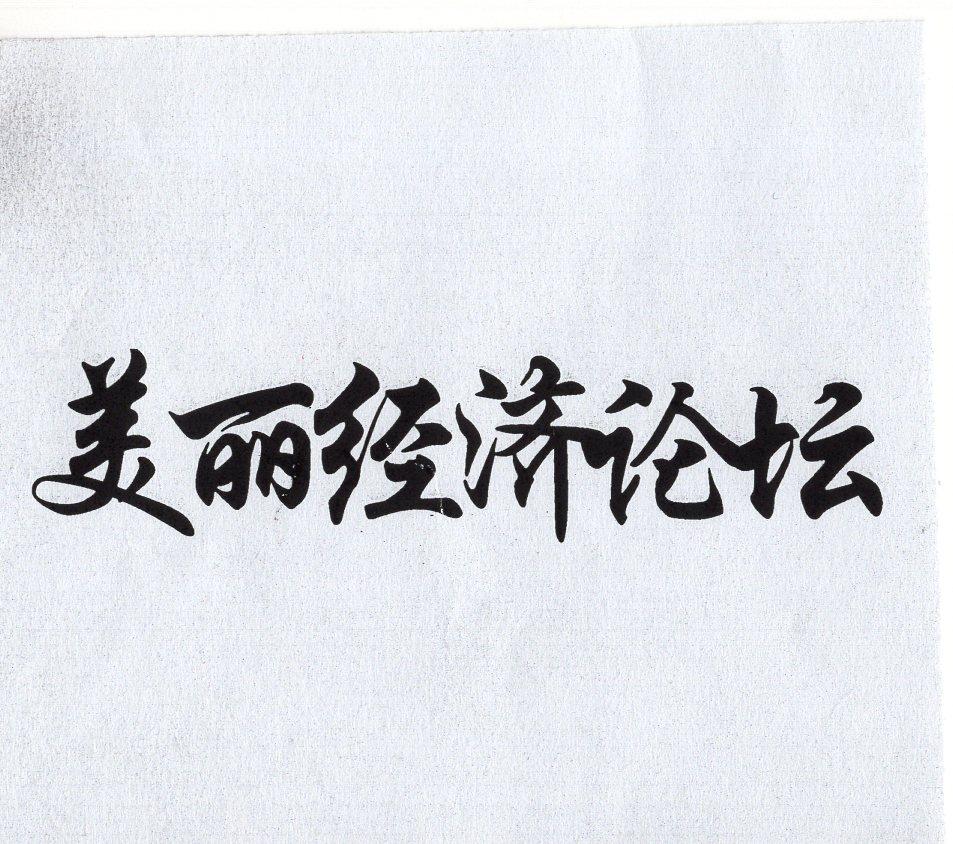 美丽经济论坛